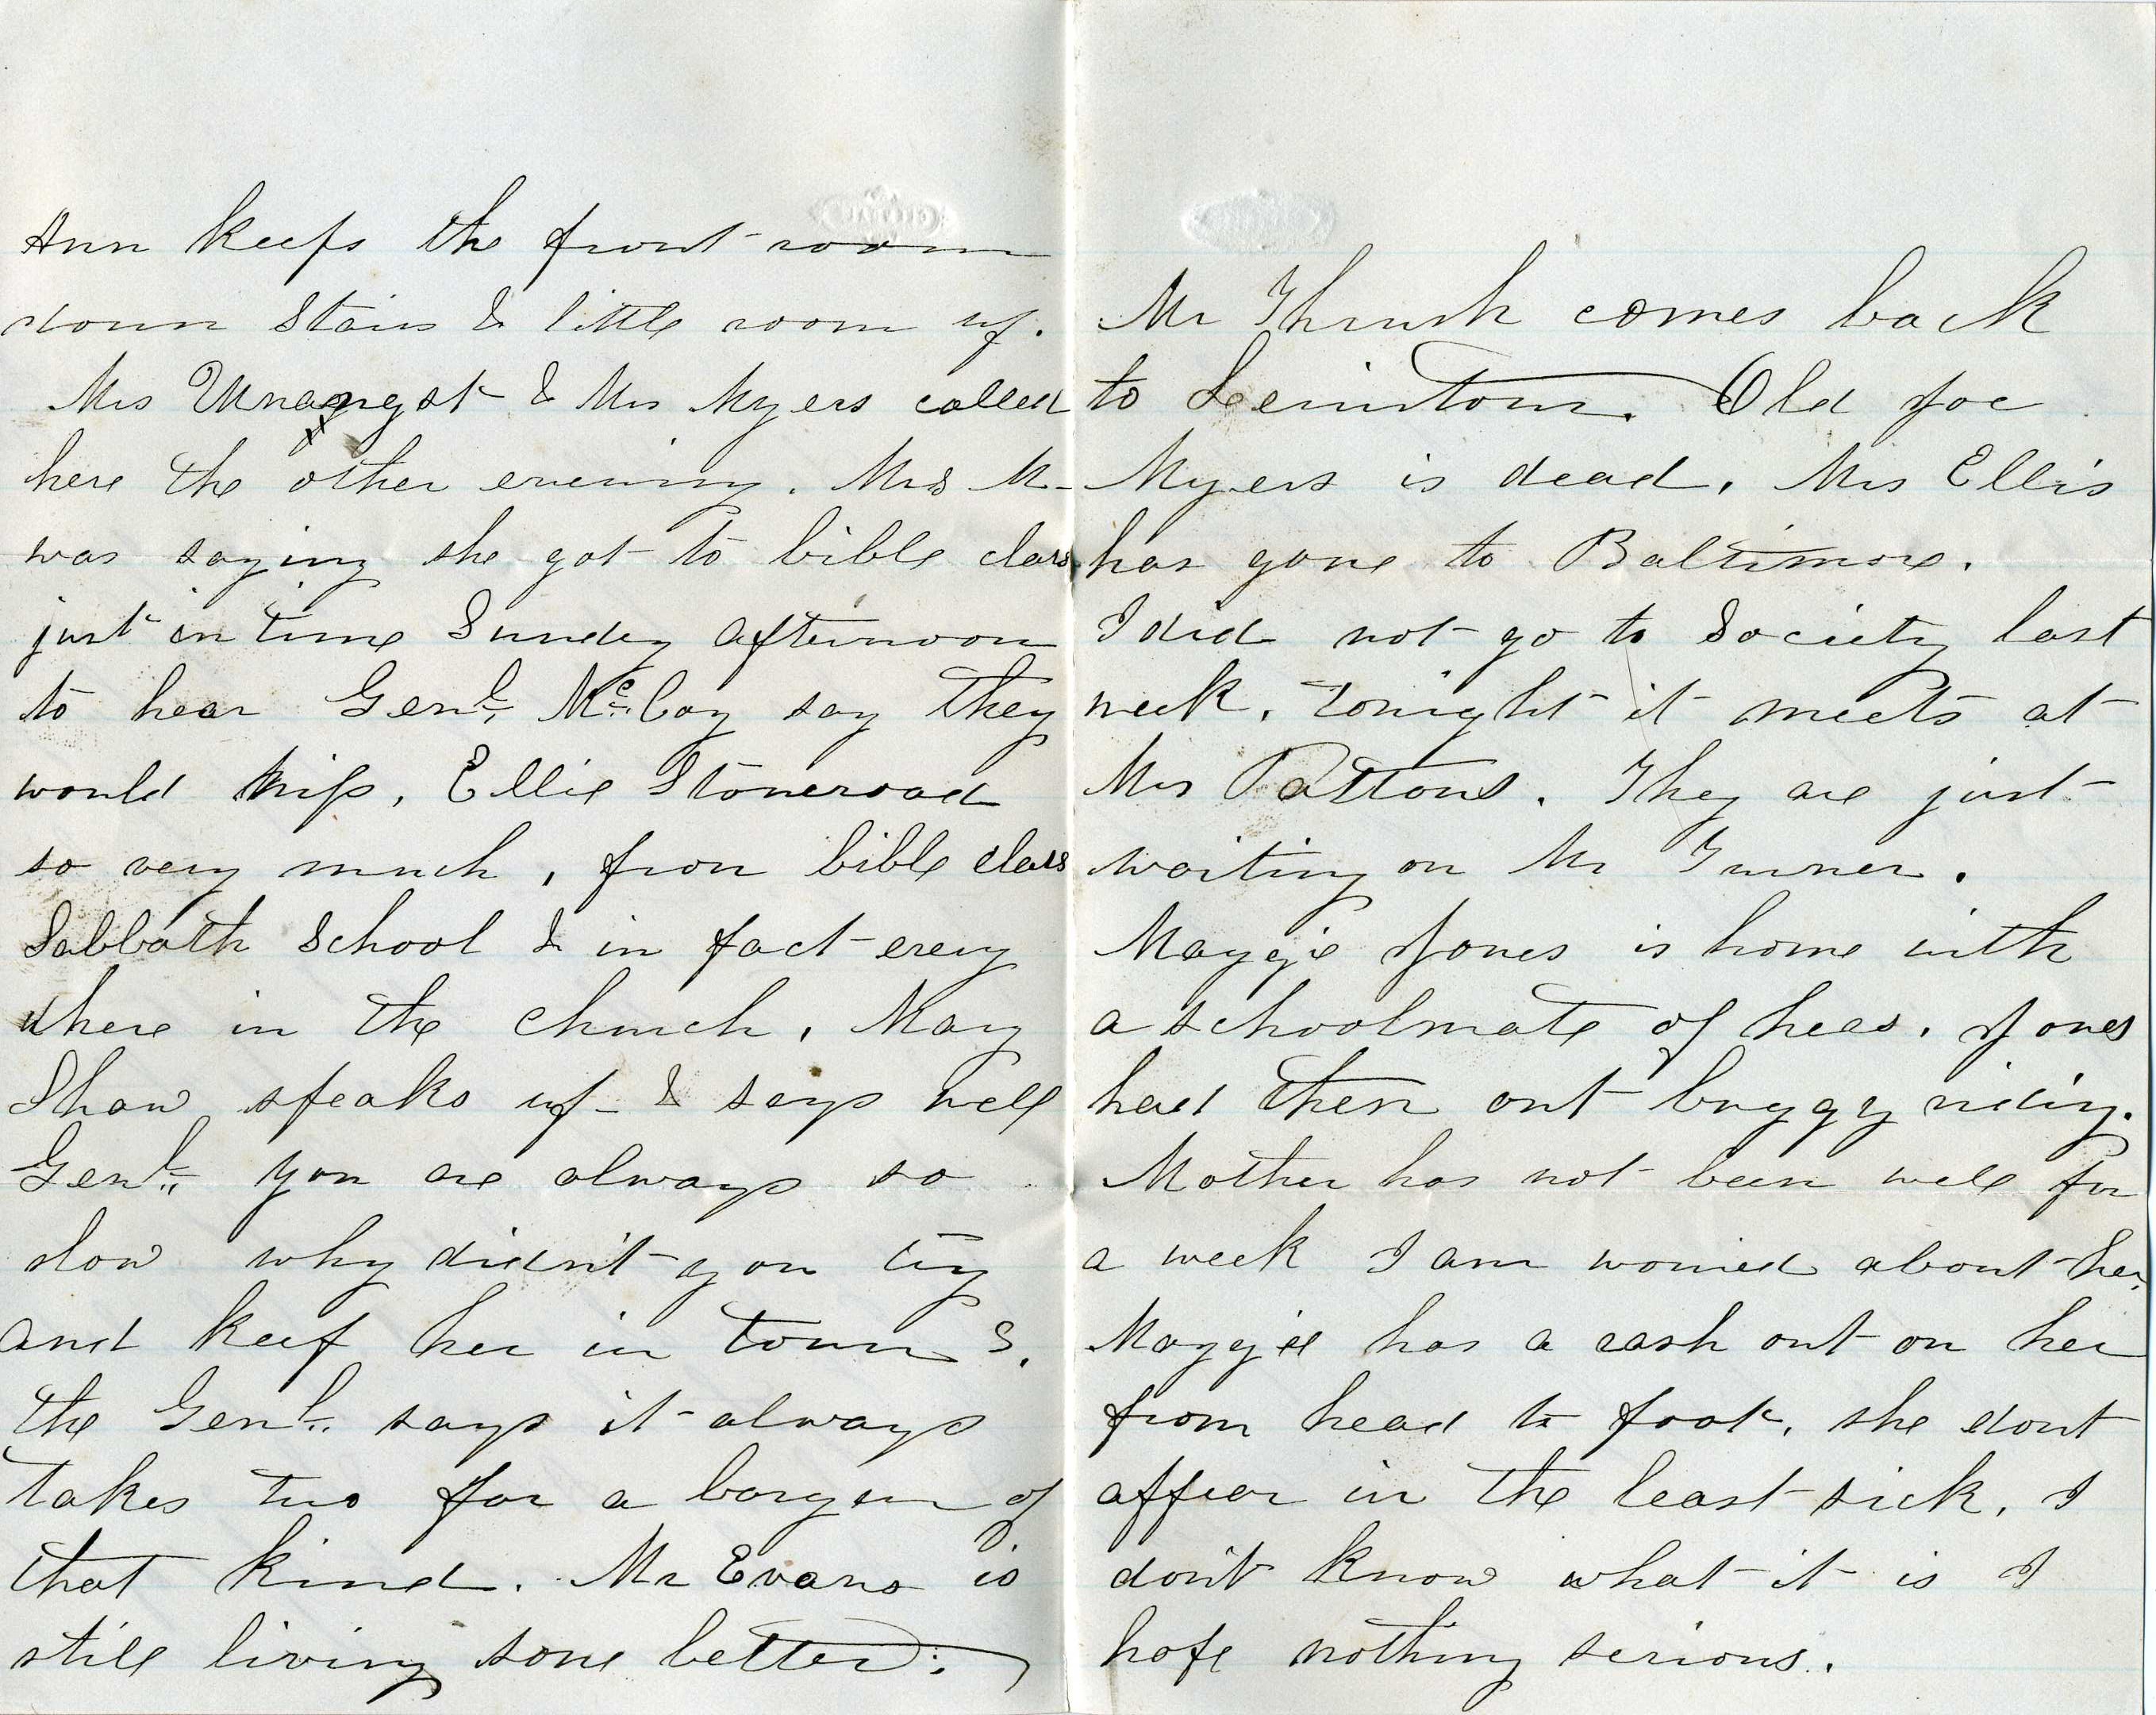 Ann keeps the front room
down stairs & little room up.
Mrs Umangst & Mrs Myers called
here the other evening. Mrs M-
was saying she got to bible class
just in time Sunday afternoon
to hear Genl. McCoy say they
would miss, Ellie Stoneroad
so very much, from bible class
Sabbath School & in fact every
where in the church. Mary
Shaw speaks up & says well
Genl. you are always so
slow why didn't you try
and keep her in town?.
the Genl. says it always
takes two for a bargen of
that kind. Mr Evans is
still living some better.
Mr Thrush comes back
to Lewistown. Old Joe
Myers is dead. Mrs Ellis
has gone to Baltimore.
I did not go to Society last
week. Tonight it meets at
Mrs Pattons. They are just
waiting on Mr Turner.
Maggie Jones is home with
a schoolmate of hers. Jones
had then out buggy riding.
Mother has not been well for
a week I am worried about her.
Maggie has a rash out on her
from head to foot. she dont
appear in the least sick. I
don't know what it is I
hope nothing serious.